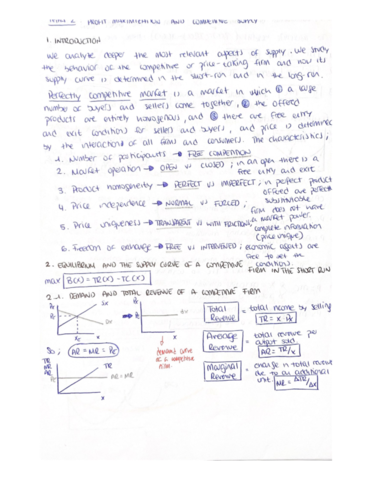 PROFIT MAXIMIZATION AND COMPETITIVE SUPPLY
1. INTRODUCTION
We analyze deeper the most relevant aspects of supply. We study
the behavior of the competitive or price-taking firm and how its
supply curve is determined in the short-run and in the long-run.
Perfectly competitive market is a market in which ① a large
number of buyers and sellers come together, ② the offered
products are entirely homogeneous, and ③ there are free entry
and exit conditions for sellers and buyers, and price is determined
by the interactions of all firms and consumers. The characteristics;
1. Number of participants → FREE COMPETITION
2. Market operation → OPEN vs CLOSED; in an open there is a
free entry and exit.
3. Product homogeneity → PERFECT vs IMPERFECT; in perfect product
offered are perfect
substitutable
4. Price independence → NORMAL vs FORCED; firm does not have
a market power.
5. Price uniqueness → TRANSPARENT vs WITH FRICTIONS; complete information
(price unique)
6. Freedom of demand → FREE vs INTERVENED; economic agents are
free to set the
conditions.
2. EQUILIBRIUM AND THE SUPPLY CURVE OF A COMPETITIVE FIRM IN THE SHORT RUN
max B(x) = TR(x) - TC(x)
2.1. DEMAND AND TOTAL REVENUE OF A COMPETITIVE FIRM
Total Revenue = total income by selling
TR = x · Pc
Average Revenue = total revenue per
output sold.
AR = TR/x
Marginal Revenue = change in total revenue
due to an additional
unit MR = ΔTR/Δx
So, AR = MR = Pc
demand curve
of a competitive
firm
TR
MR
AR
TR
AR = MR
x